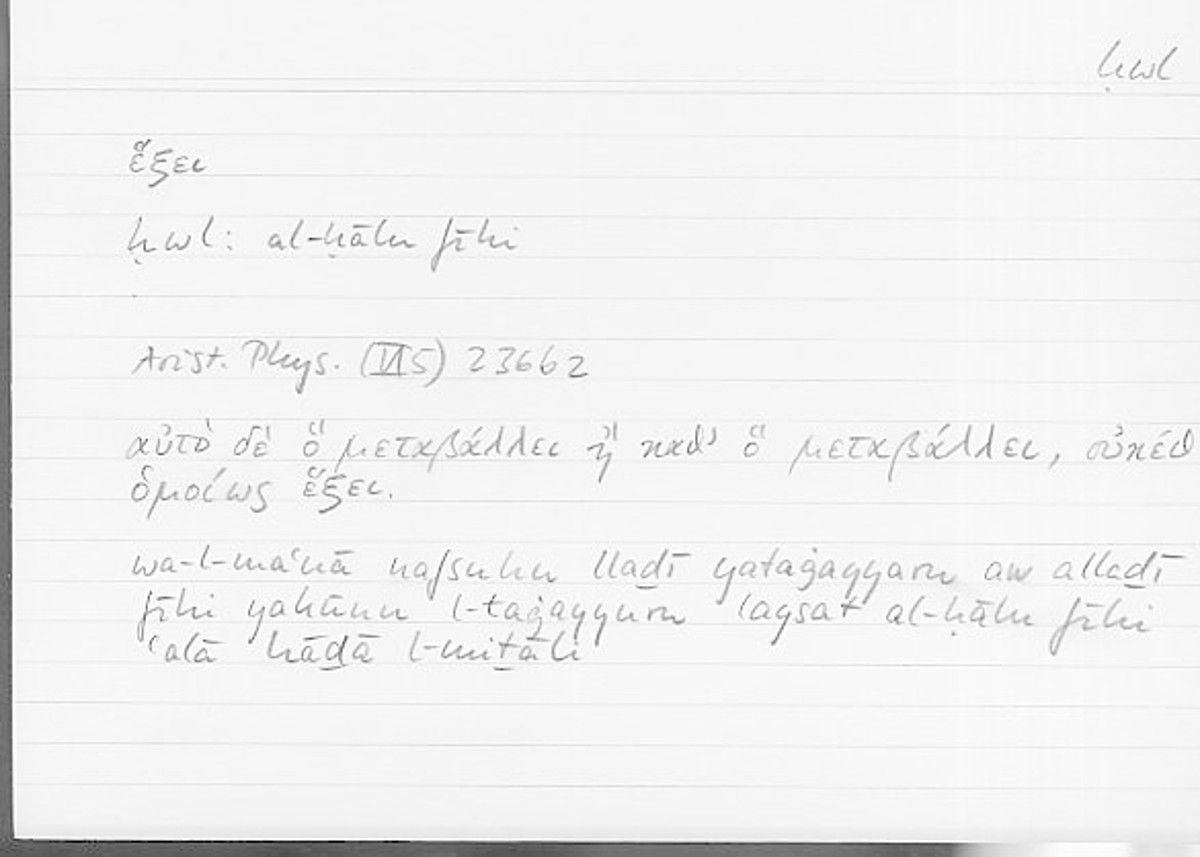 ḥwl
ἕξει
ḥwl: al-ḥālu fīhi
Arist. Phys. (VI5) 236b2
αὐτὸ δὲ ὃ μεταβάλλει ἢ καθ' ὃ μεταβάλλει, οὐκέθ
ὁμοίως ἕξει.
wa-l-maʿnā nafsuhu lladī yataġayyaru aw alladī
fīhi yakūnu l-taġayyuru laysat al-ḥālu fīhi
ʿalā hāḏā l-miṯāli